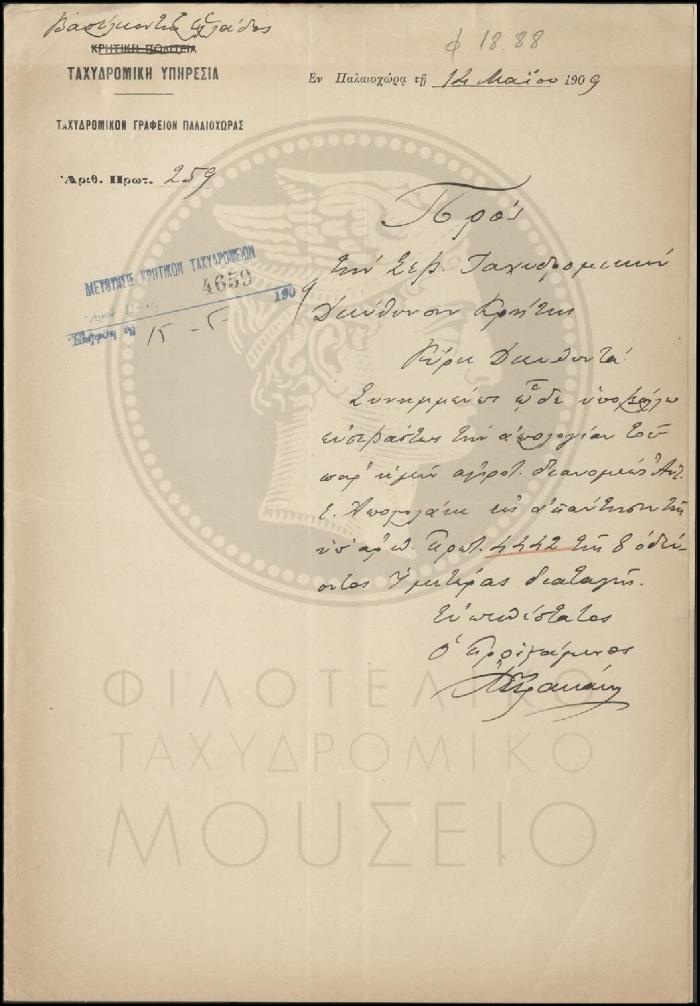 Βασίλειον τῆς Ἑλλάδος
ΚΡΗΤΙΚΗ ΠΟΛΙΤΕΙΑ
ΤΑΧΥΔΡΟΜΙΚΗ ΥΠΗΡΕΣΙΑ
ΤΑΧΥΔΡΟΜΙΚΟΝ ΓΡΑΦΕΙΟΝ ΠΑΛΑΙΟΧΩΡΑΣ
Ἀριθ. Πρωτ. 259
φ 18.88
Ἐν Παλαιοχώρᾳ τῇ 14 Μαΐου 1909
ΔΙΕΥΘΥΝΣΙΣ ΚΡΗΤΙΚΩΝ ΤΑΧΥΔΡΟΜΕΙΩΝ
Ἀριθ. Πρωτ. 4659
15-5 1909
Πρός
τὴν Σεβ. Ταχυδρομικὴν
Διεύθυνσιν Κρήτης
Κύριε Διευθυντά
Συνημμένως ὧδε ὑποβάλλω
εὐσεβάστως τὴν ἀπολογίαν τοῦ
παρ' ἡμῖν ἀγροτ. διανομέως Ἀντ.
Ε. εἰς ἀπάντησιν τῆς
ὑπ' ἀριθ. Πρωτ. 4442 τῆς 8 ὁδεύ-
οντος Ὑμετέρας διαταγῆς.
Εὐπειθέστατος
Ὁ Προϊστάμενος
ΦΙΛΟΤΕΛΙΚΟ
ΤΑΧΥΔΡΟΜΙΚΟ
ΜΟΥΣΕΙΟ